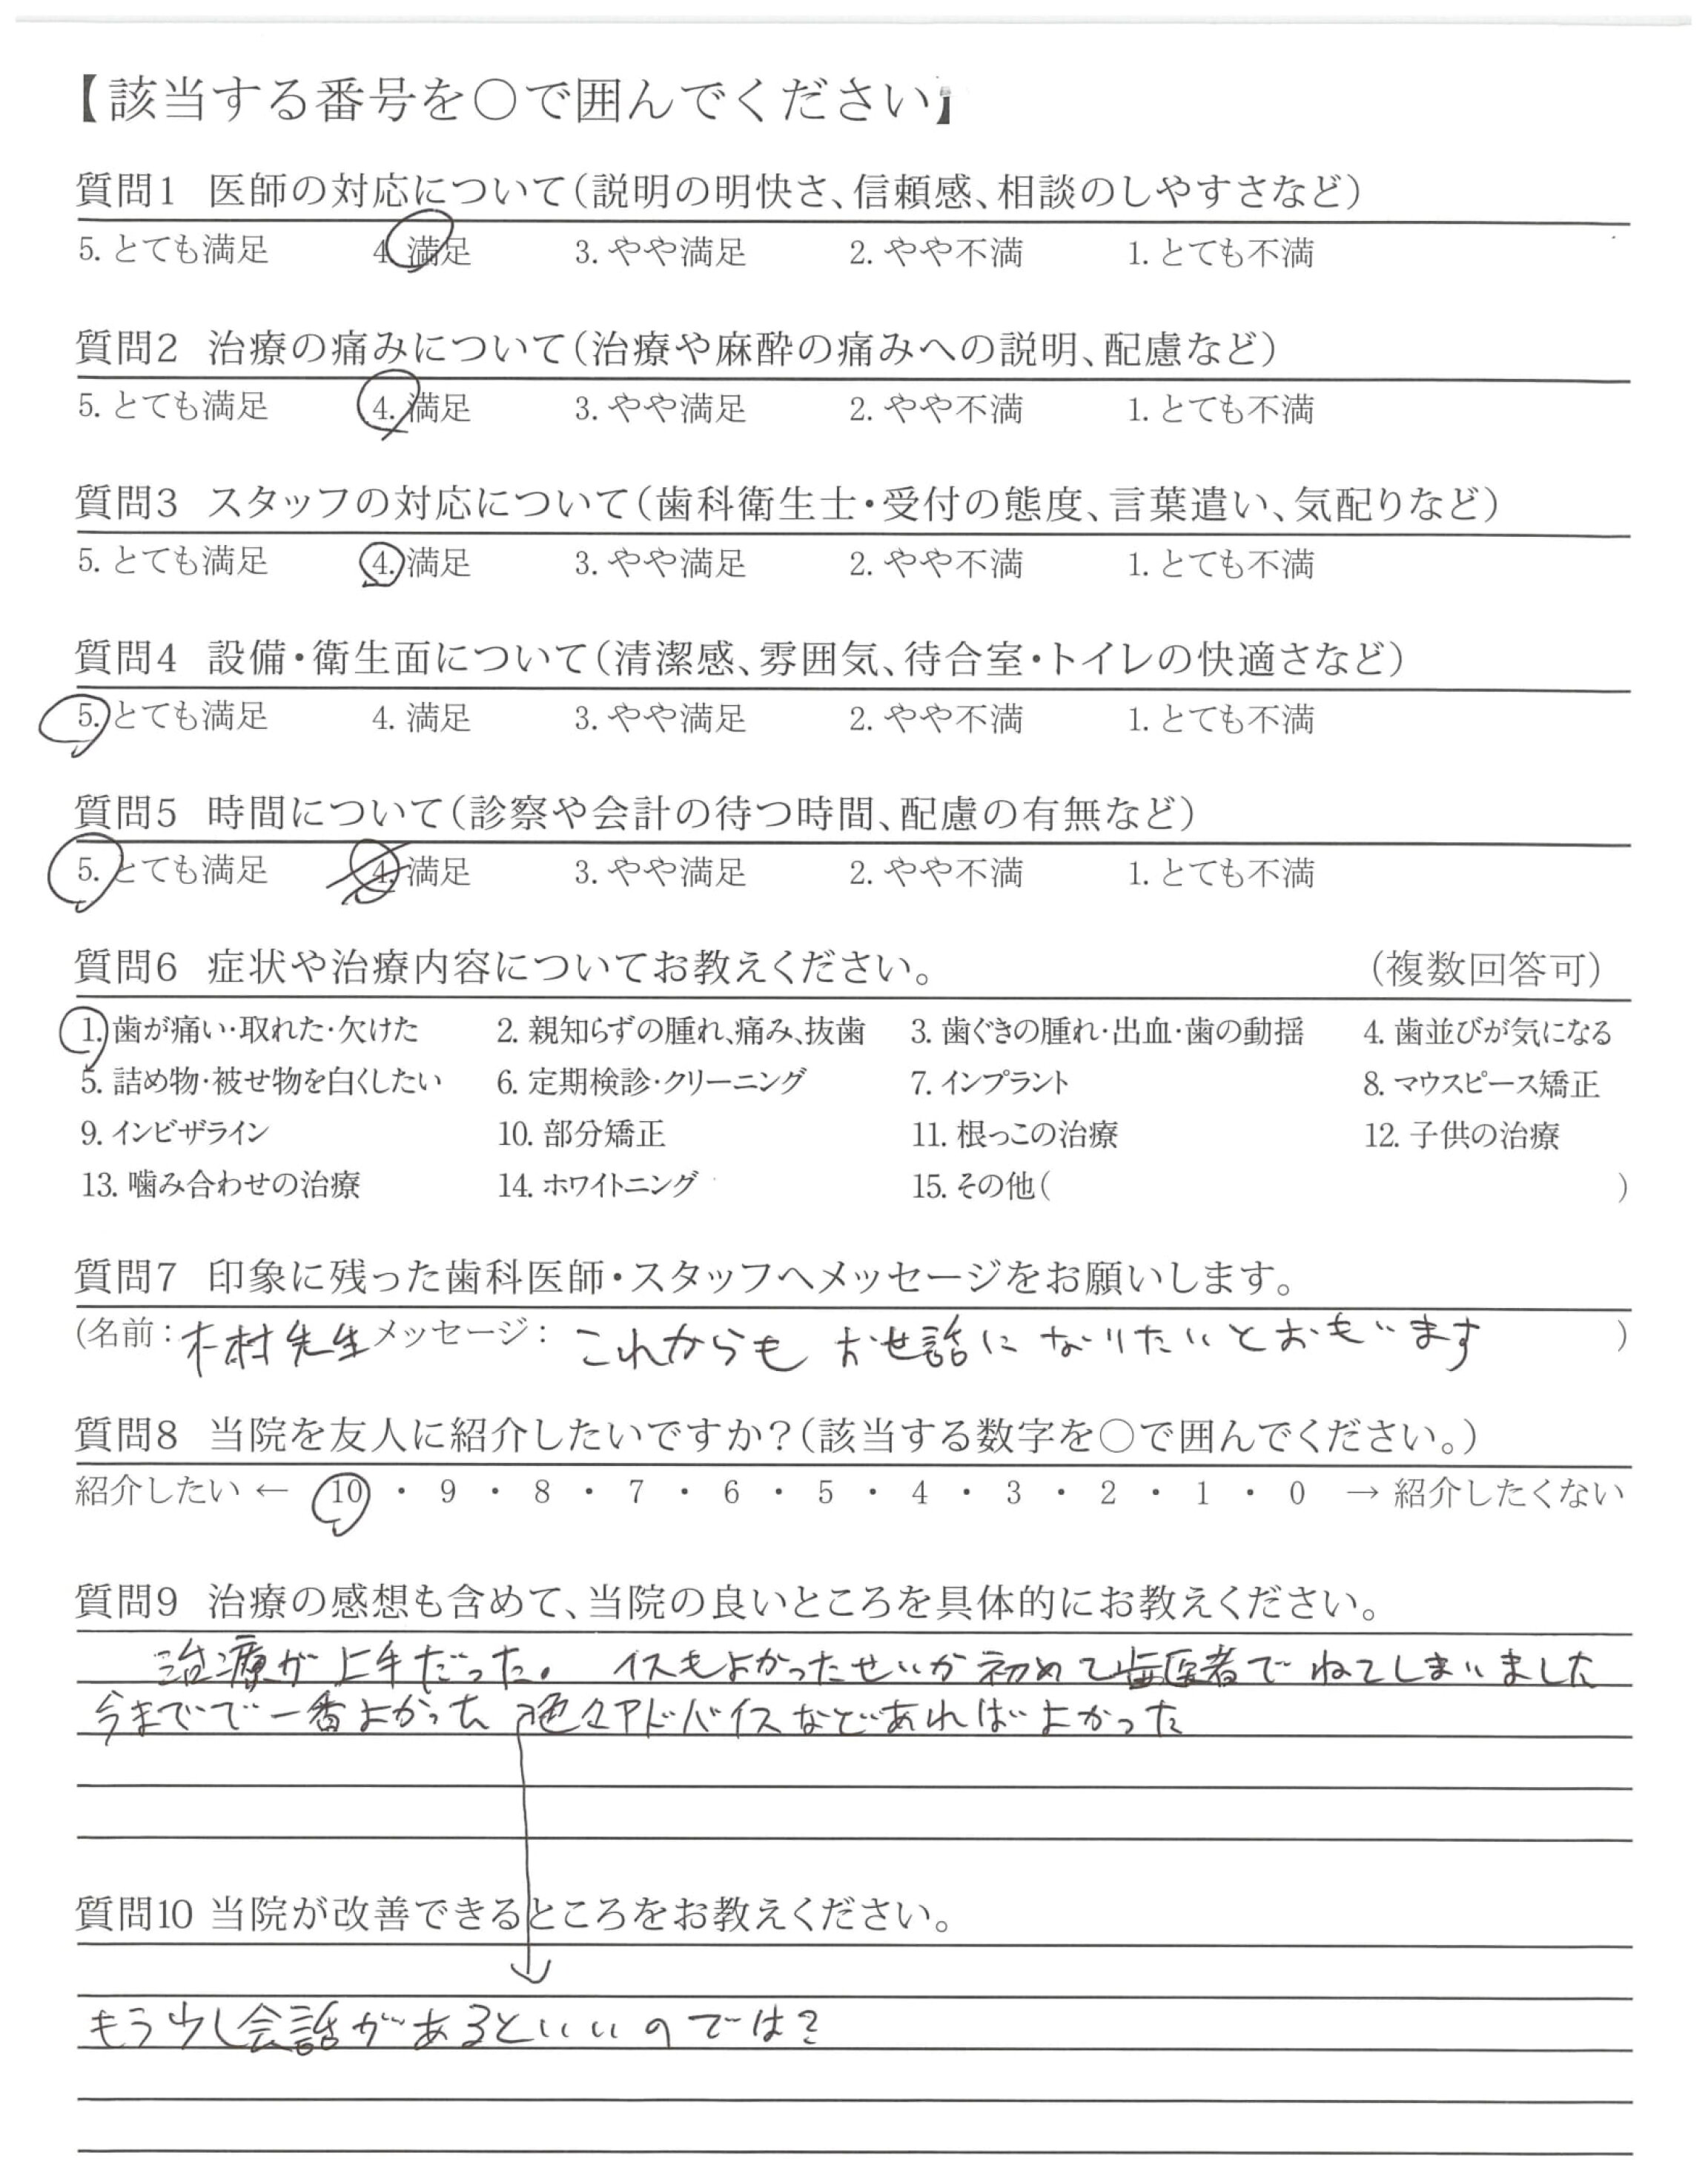 【該当する番号を○で囲んでください】
質問1 医師の対応について(説明の明快さ、信頼感、相談のしやすさなど)
5. とても満足 4. 満足 3. やや満足 2. やや不満 1. とても不満
質問2 治療の痛みについて(治療や麻酔の痛みへの説明、配慮など)
5. とても満足 4. 満足 3. やや満足 2. やや不満 1. とても不満
質問3 スタッフの対応について(歯科衛生士・受付の態度、言葉遣い、気配りなど)
5. とても満足 4. 満足 3. やや満足 2. やや不満 1. とても不満
質問4 設備・衛生面について(清潔感、雰囲気、待合室・トイレの快適さなど)
5. とても満足 4. 満足 3. やや満足 2. やや不満 1. とても不満
質問5 時間について(診察や会計の待つ時間、配慮の有無など)
5. とても満足 4. 満足 3. やや満足 2. やや不満 1. とても不満
質問6 症状や治療内容についてお教えください。 (複数回答可)
1. 歯が痛い・取れた・欠けた 2. 親知らずの腫れ、痛み、抜歯 3. 歯ぐきの腫れ・出血・歯の動揺 4. 歯並びが気になる
5. 詰め物・被せ物を白くしたい 6. 定期検診・クリーニング 7. インプラント 8. マウスピース矯正
9. インビザライン 10. 部分矯正 11. 根っこの治療 12. 子供の治療
13. 噛み合わせの治療 14. ホワイトニング 15. その他( )
質問7 印象に残った歯科医師・スタッフへメッセージをお願いします。
(名前：木村先生 メッセージ： これからも お世話に なりたいとおもいます )
質問8 当院を友人に紹介したいですか？(該当する数字を○で囲んでください。)
紹介したい ← 10 ・ 9 ・ 8 ・ 7 ・ 6 ・ 5 ・ 4 ・ 3 ・ 2 ・ 1 ・ 0 → 紹介したくない
質問9 治療の感想も含めて、当院の良いところを具体的にお教えください。
治療が上手だった。 イスもよかったせいか 初めて歯医者でねてしまいました
今までで一番よかった 色々アドバイスなどあればよかった
質問10 当院が改善できるところをお教えください。
もう少し会話があるといいのでは？